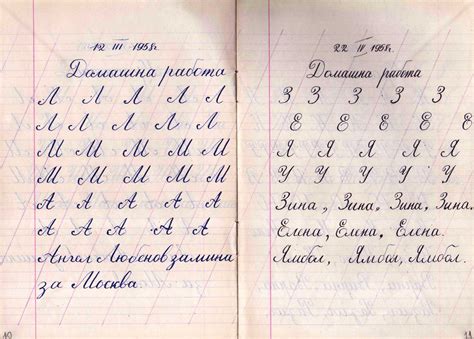 12 III 1958г.
Домашна работа
Л Л Л Л Л
Л Л Л Л Л
М М М М М
М М М М М
А А А А А
А А А А А
Ангел Любенов замина
за Москва.
10
22 IV 1958г.
Домашна работа
З З З З З
Е Е Е Е Е
Я Я Я Я Я
У У У У У
Зина, Зина, Зина, Зина.
Елена, Елена, Елена.
Ямбол, Ямбол, Ямбол.
11